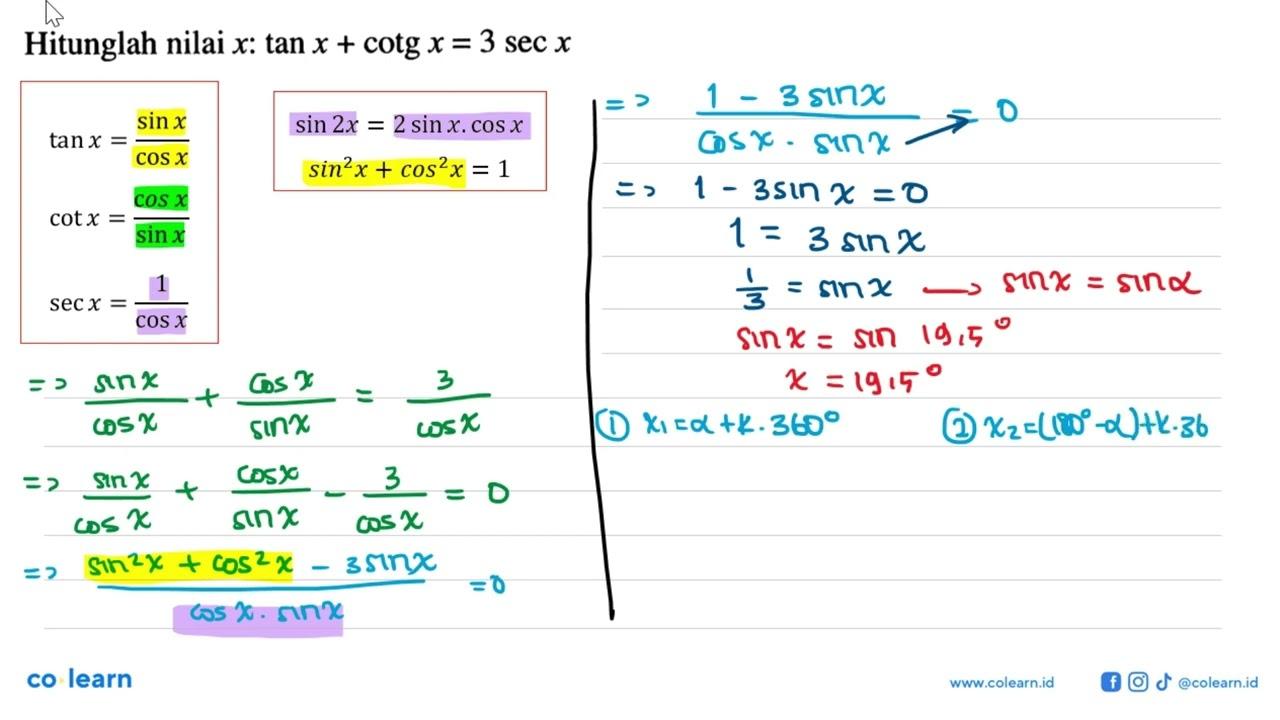 Hitunglah nilai x: tan x + cotg x = 3 sec x
tan x = sin x / cos x
cot x = cos x / sin x
sec x = 1 / cos x
sin 2x = 2 sin x. cos x
sin²x + cos²x = 1
=> sin x / cos x + cos x / sin x = 3 / cos x
=> sin x / cos x + cos x / sin x - 3 / cos x = 0
=> sin²x + cos²x - 3 sin x / cos x . sin x = 0
=> 1 - 3 sin x / cos x . sin x = 0
=> 1 - 3 sin x = 0
1 = 3 sin x
1/3 = sin x → sin x = sin α
sin x = sin 19,5°
x = 19,5°
① x₁ = α + k . 360° ② x₂ = (180° - α) + k . 36
co learn
www.colearn.id @colearn.id